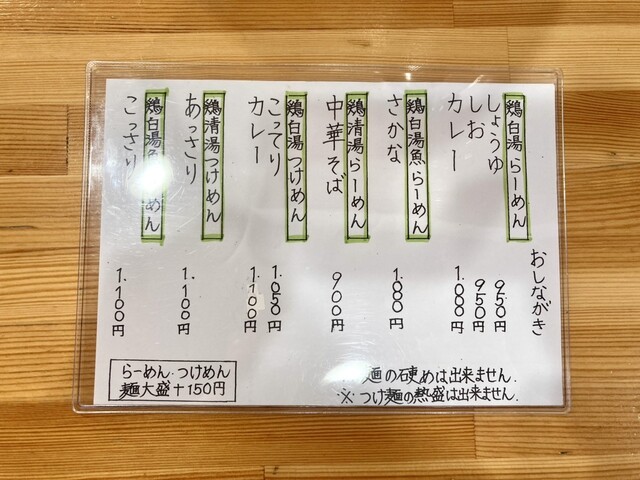 おしながき
鶏白湯らーめん
しょうゆ 950円
しお 950円
カレー 1.000円
鶏白湯魚らーめん
さかな 1.000円
鶏清湯らーめん
中華そば 900円
鶏白湯つけめん
こってり 1.050円
カレー 1.100円
鶏清湯つけめん
あっさり 1.100円
鶏白湯魚 めん
こっさり 1.100円
麺の硬めは出来ません.
※つけ麺の熱盛は出来ません.
らーめん.つけめん
麺大盛+150円